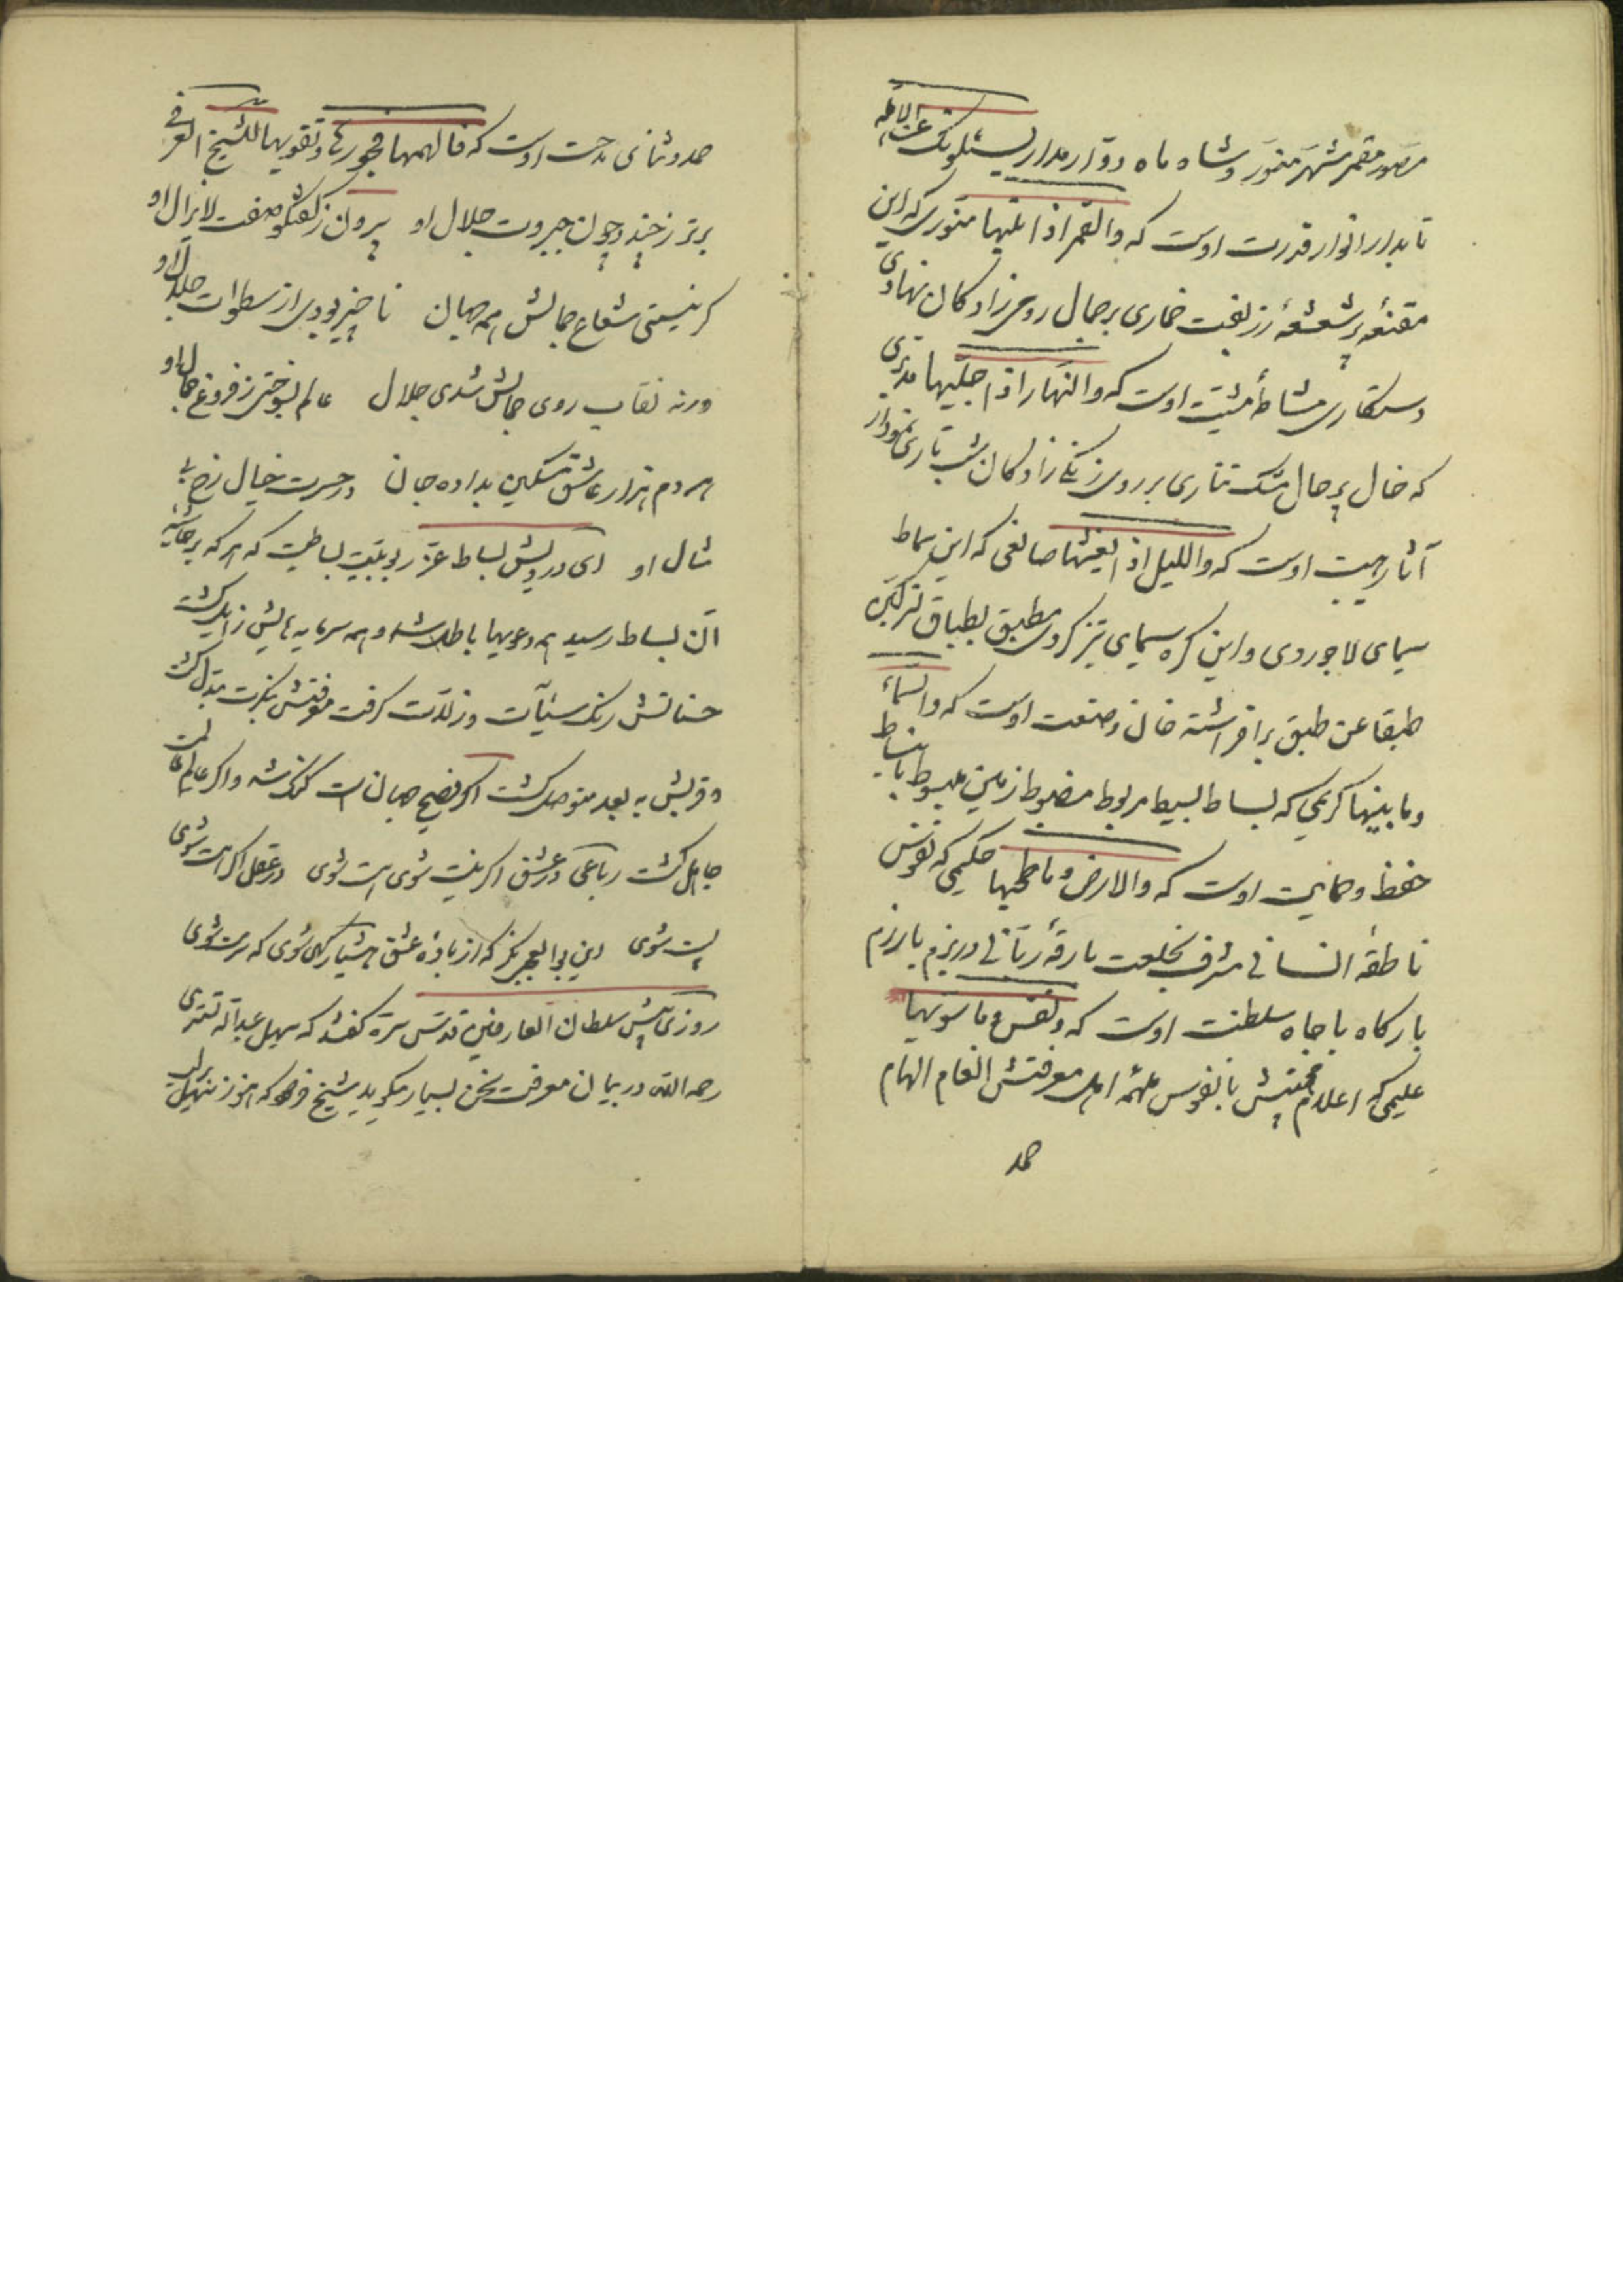 مصور مقمر شهر منور و شاه ماه دوار مدار یسئلونک عن الاهله
تابدار انوار قدرت اوست که والقمر اذا تلیها منوری که این
مقنعهٔ پر شعشعهٔ زربفت خماری بر جمال رومی زادکان نهادی
دستکاری مشاطهٔ مشیت اوست که والنهار اذا جلیها مدبری
که خال پر حال مشک تتاری بر روی زنکی زادکان شب تاری نمودار
آثار هیبت اوست که واللیل اذا یغشیها صانعی که این سماط
سیمای لاجوردی و این کره سیمای تیز کردی مطبق بطباق لترکبن
طبقا عن طبق برافراشته خان صنعت اوست که والسماء
وما بنیها کریمی که بساط بسیط مربوط مضبوط زمین مبسوط بانبساط
حفظ و حمایت اوست که والارض وما طحیها حکیمی که نفوس
ناطقهٔ انسانی مشرف بخلعت بارقهٔ ربانی در بزم بارزم
بارکاه با جاه سلطنت اوست که ونفس وما سویها
علیمی که اعلام محبتش با نفوس ملهمه اهل معرفتش انعام الهام
حمد
حمد و ثنای مدحت اوست که فالهمها فجورها وتقویها للشیخ العراقی
برتر ز چند و چون جبروت جلال او بیرون ز کفتکو صفت لایزال او
کر نیستی شعاع جمالش همه جهان ناچیز بودی از سطوات جلال او
ورنه نقاب روی جمالش شدی جلال عالم بسوختی ز فروغ جمال او
هر دم هزار عاشق مسکین بداده جان در حسرت خیال رخ بی
مثال او ای درویش بساط عز ربوبیت بساطیست که هر که بر حاشیه
آن بساط رسید همه دعویها باطل شد و همه سرمایه هایش زایل کشت
حسناتش رنک سیئات و زلات کرفت معرفتش بنکرت مبدل کشت
و قربش به بعد متوصل کشت اکر فصیح جهانست کنک شد و اکر عالم عالمست
جاهل کشت رباعی در عشق اکر نیست شوی هست شوی در عقل اکر هست شوی
پست شوی این بوالعجبی نکر که از بادهٔ عشق هشیار کهی شوی که سرمست شوی
روزی پیش سلطان العارفین قدس سره کفتند که سهل عبدالله تستری
رحمه الله در بیان معرفت سخن بسیار میکوید شیخ فرمود که هنوز سهل بر لب